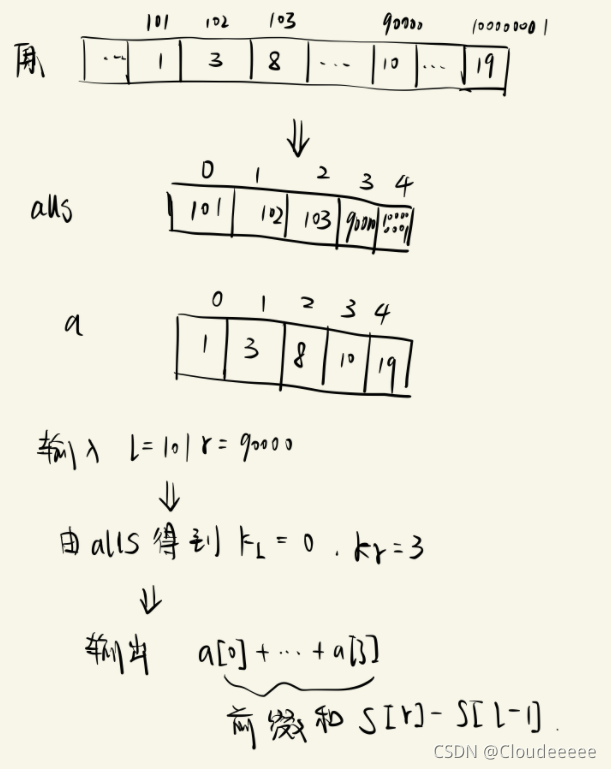 101 102 103 90000 100000001
原 ... 1 3 8 ... 10 ... 19
⇓
0 1 2 3 4
alls 101 102 103 90000 100000001
0 1 2 3 4
a 1 3 8 10 19
输入 L=101 r=90000
⇓
由alls得到 kL=0. kr=3
⇓
输出 a[0]+...+a[3]
前缀和 S[r]-S[l-1].
CSDN @Cloudeeeee